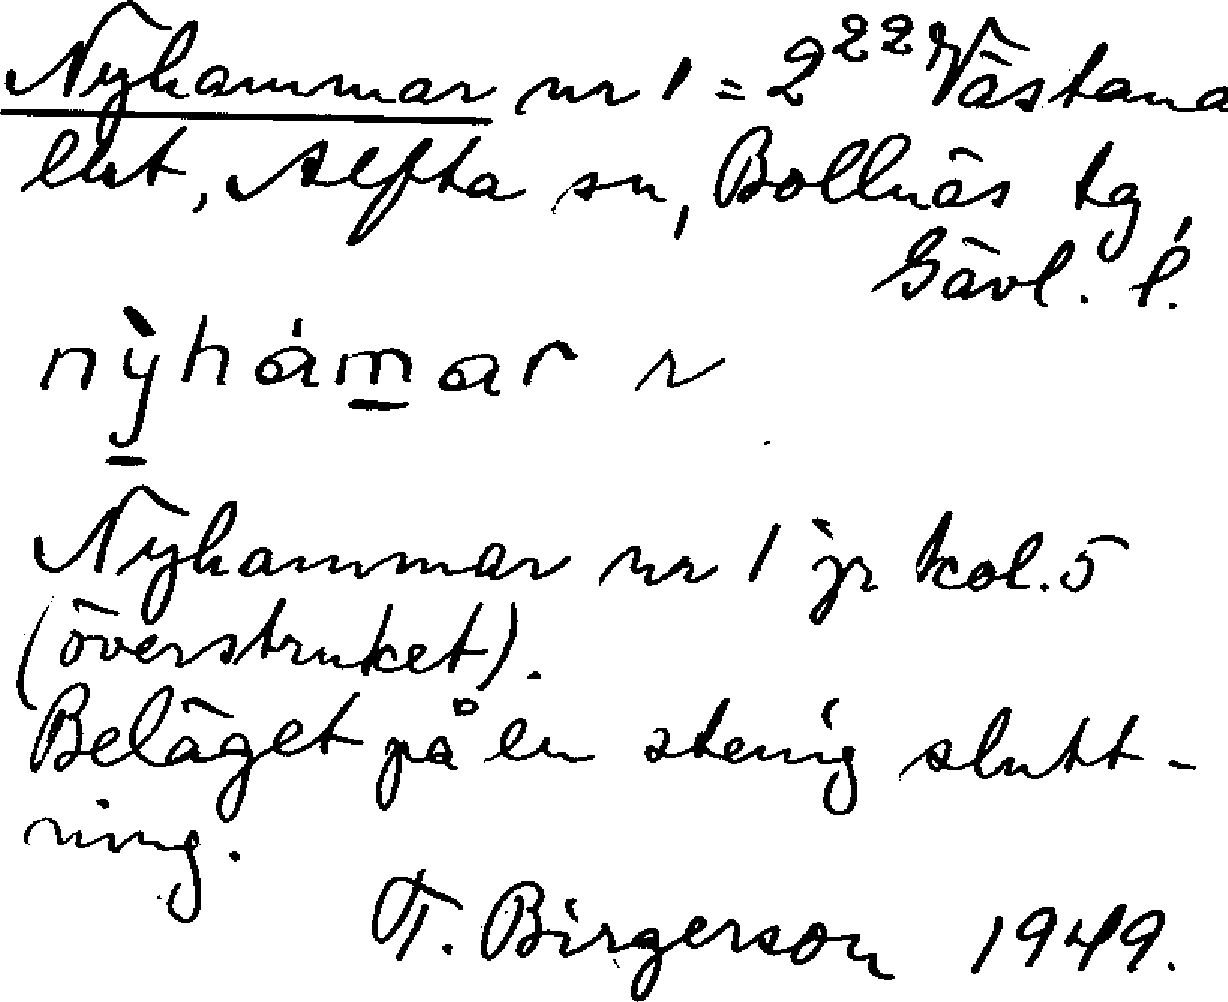 Nyhammar nr 1 = 2²² Västana
ekt, Alfta sn, Bollnäs tg,
Gävl. l.
nỳhámar ~
Nyhammar nr 1 jr kol. 5
(överstruket).
Beläget på en stenig slutt-
ning.
T. Birgerson 1949.